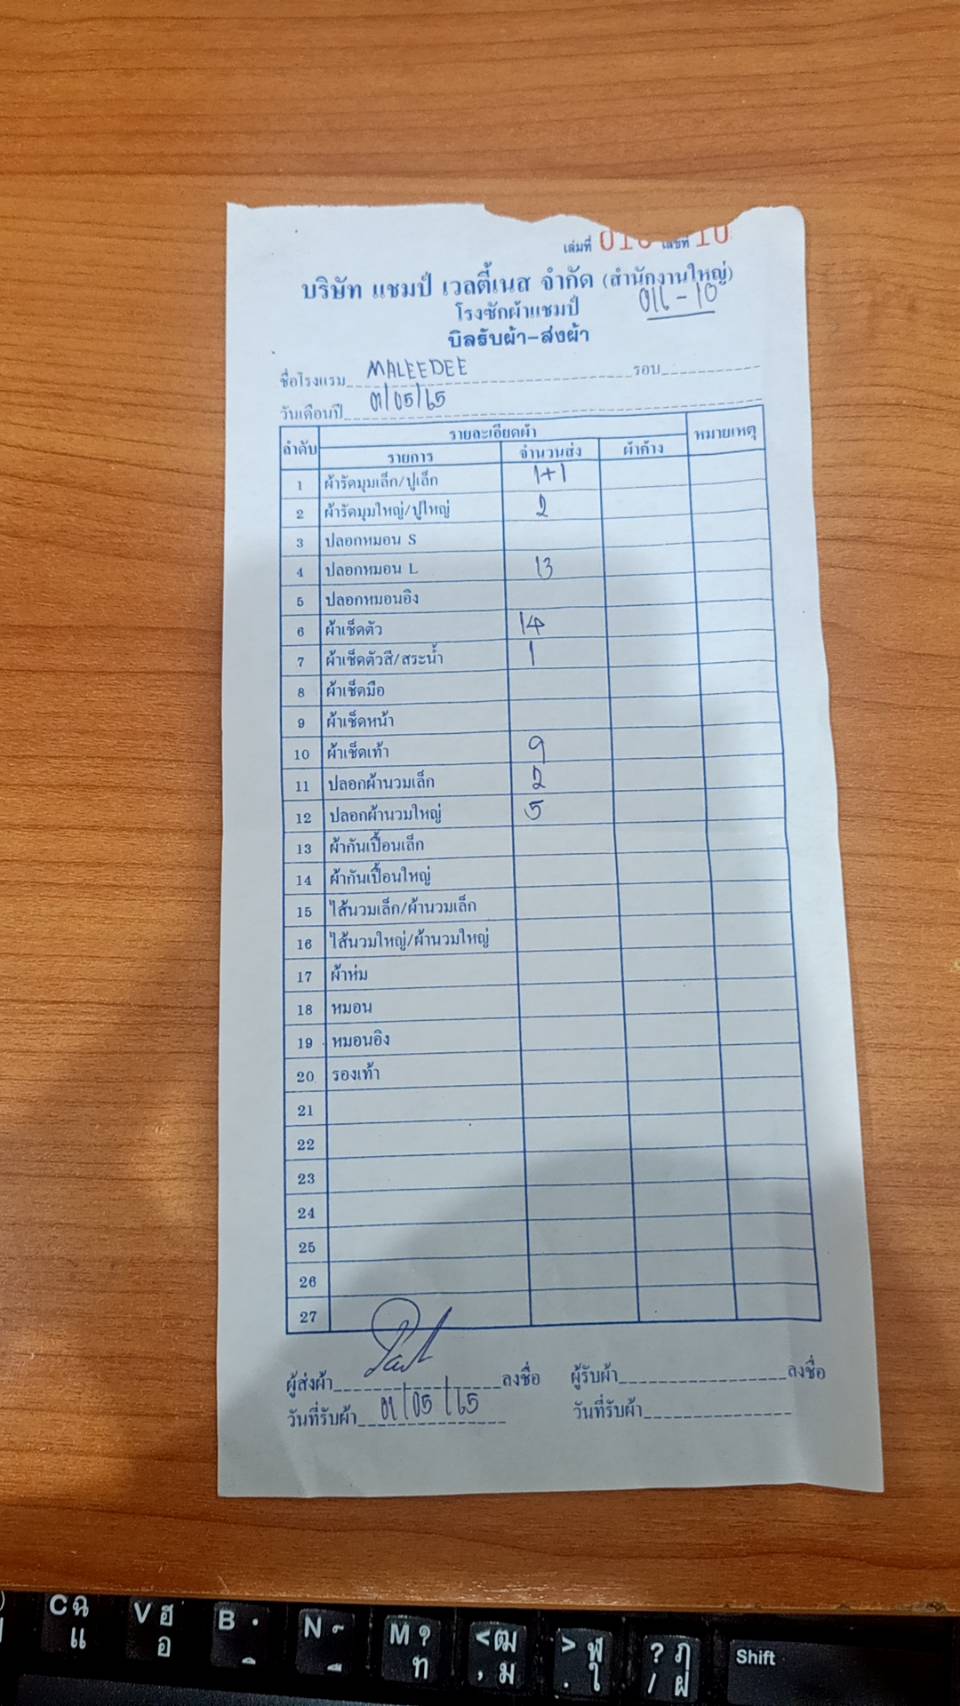 เล่มที่ 016 เลขที่ 10
บริษัท แชมป์ เวลตี้เนส จำกัด (สำนักงานใหญ่)
โรงซักผ้าแชมป์ 016-10
บิลรับผ้า-ส่งผ้า
ชื่อโรงแรม MALEEDEE รอบ
วันเดือนปี 01/05/65
ลำดับ รายละเอียดผ้า หมายเหตุ
รายการ จำนวนส่ง ผ้าค้าง
1 ผ้ารัดมุมเล็ก/ปูเล็ก 1+1
2 ผ้ารัดมุมใหญ่/ปูใหญ่ 2
3 ปลอกหมอน S
4 ปลอกหมอน L 13
5 ปลอกหมอนอิง
6 ผ้าเช็ดตัว 14
7 ผ้าเช็ดตัวสี/สระน้ำ 1
8 ผ้าเช็ดมือ
9 ผ้าเช็ดหน้า
10 ผ้าเช็ดเท้า 9
11 ปลอกผ้านวมเล็ก 2
12 ปลอกผ้านวมใหญ่ 5
13 ผ้ากันเปื้อนเล็ก
14 ผ้ากันเปื้อนใหญ่
15 ไส้นวมเล็ก/ผ้านวมเล็ก
16 ไส้นวมใหญ่/ผ้านวมใหญ่
17 ผ้าห่ม
18 หมอน
19 หมอนอิง
20 รองเท้า
21
22
23
24
25
26
27
ผู้ส่งผ้า ลงชื่อ ผู้รับผ้า ลงชื่อ
วันที่รับผ้า 01/05/65 วันที่รับผ้า
C ฉ แ V ฮ อ B N M ? ท < ฒ , ม > ฬ . ใ ? ฦ / ฝ Shift